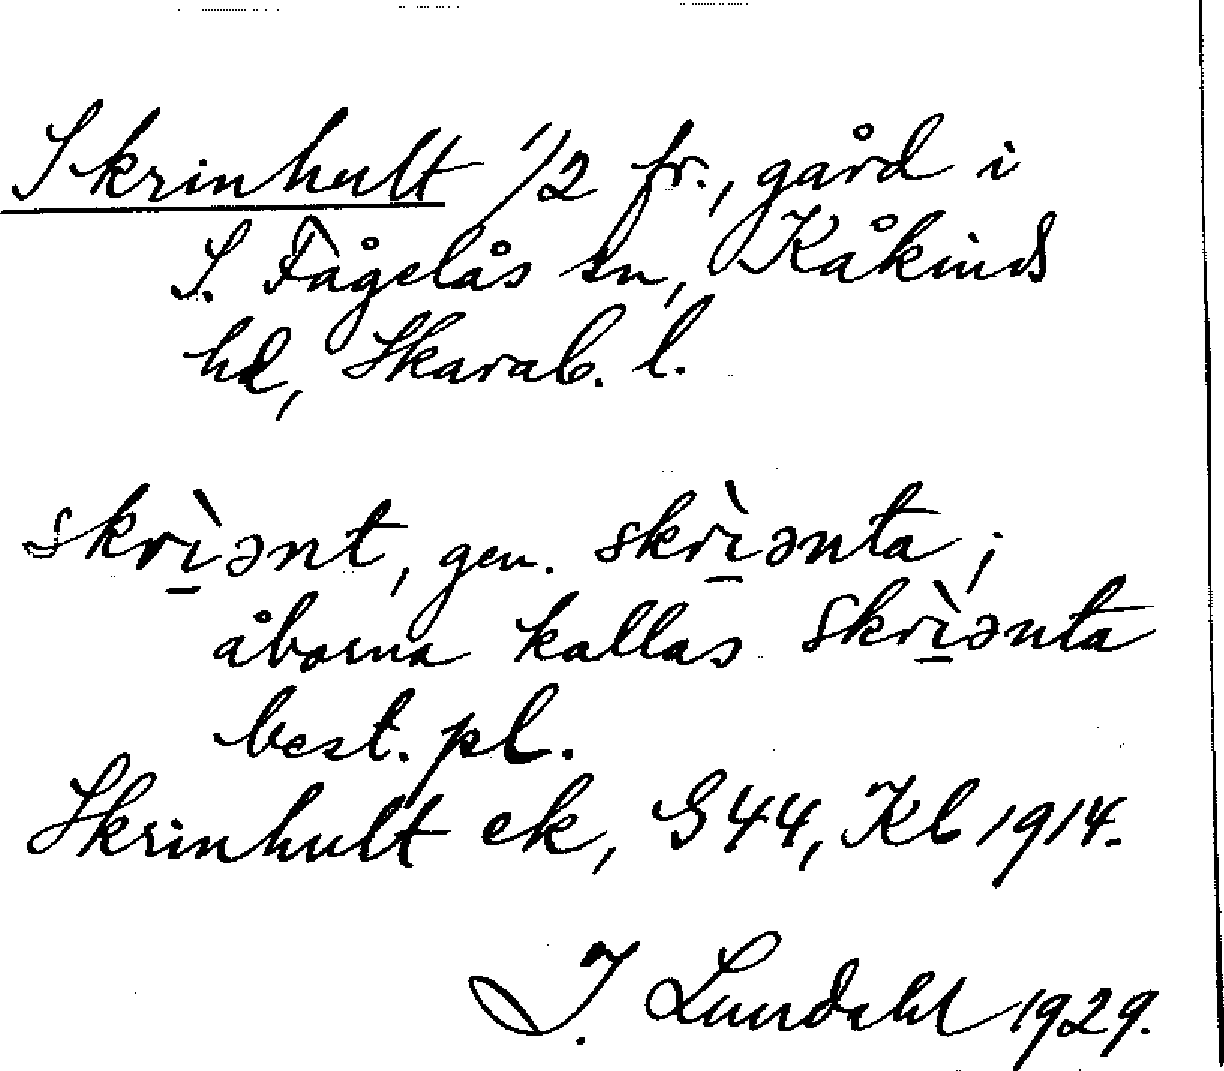 Skrinhult 1/2 fr., gård i
S. Fågelås sn, Kåkinds
hd, Skarab. l.
skrı̱̀ənt, gen. skrı̱̀ənta;
åborna kallas skrı̱̀ənta
best. pl.
Skrinhult ek, G 44, Kb 1914.
I. Lundahl 1929.